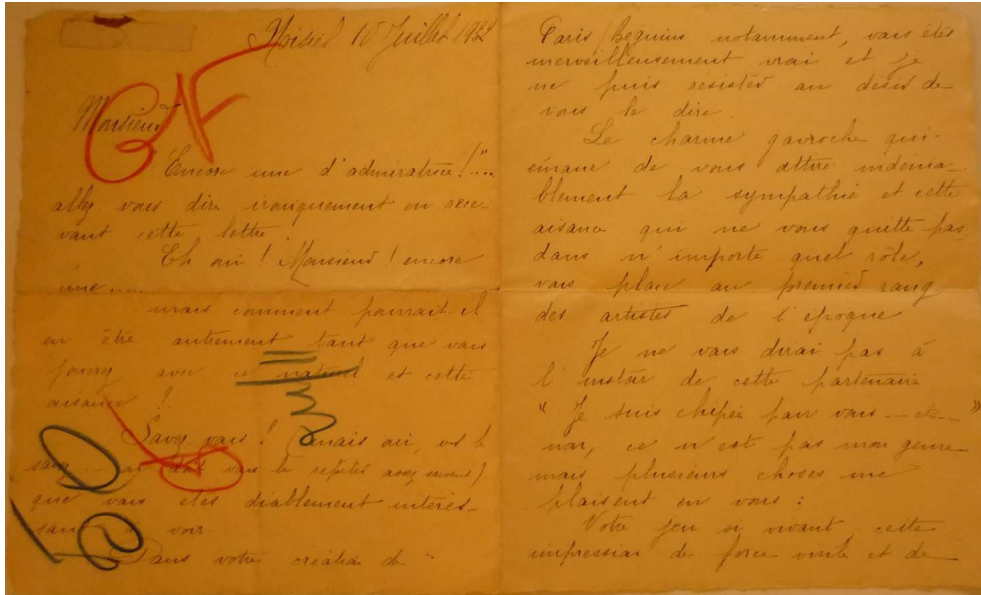 10 Juillet 1922
Monsieur
"Encore une d'admiratrice!"....
allez vous dire ironiquement en rece-
vant cette lettre
Eh oui! Monsieur! encore
une....
mais comment pourrait-il
en être autrement tant que vous
jouerez avec ce naturel et cette
aisance!
Savez-vous? (mais oui, vs le
savez vous le répéter assez souvent)
que vous êtes diablement intéres-
sant à voir
Dans votre création de "
Paris Béguins notamment, vous êtes
merveilleusement vrai et je
ne puis résister au désir de
vous le dire.
Le charme gavroche qui
émane de vous attire indénia-
blement la sympathie et cette
aisance qui ne vous quitte pas
dans n'importe quel rôle,
vous place au premier rang
des artistes de l'époque
Je ne vous dirai pas à
l'instar de cette partenaire
"Je suis chipée pour vous -- etc -- "
non, ce n'est pas mon genre
mais plusieurs choses me
plaisent en vous :
Votre jeu si vivant cette
impression de force virile et de